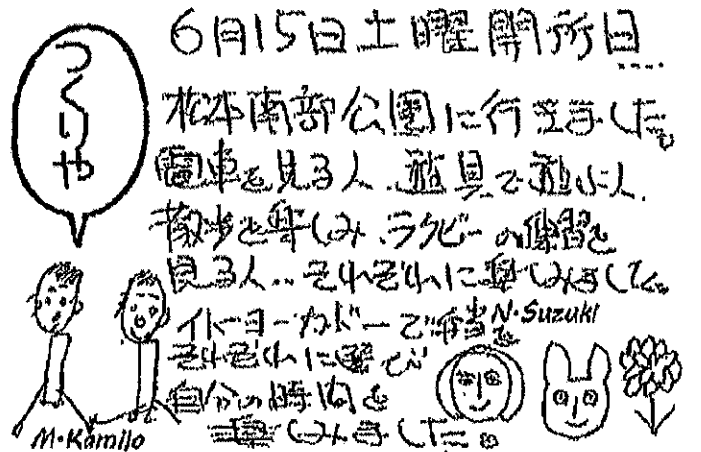 つくりや
6月15日土曜開所日
松本南部公園に行きました。
電車を見る人、遊具で遊ぶ人、
散歩を楽しみ、ラグビーの練習を
見る人…それぞれに楽しみました。
イトーヨーカドーで弁当を
それぞれに選び
自分の時間を
楽しみました。
N・Suzuki
M・Kamijo